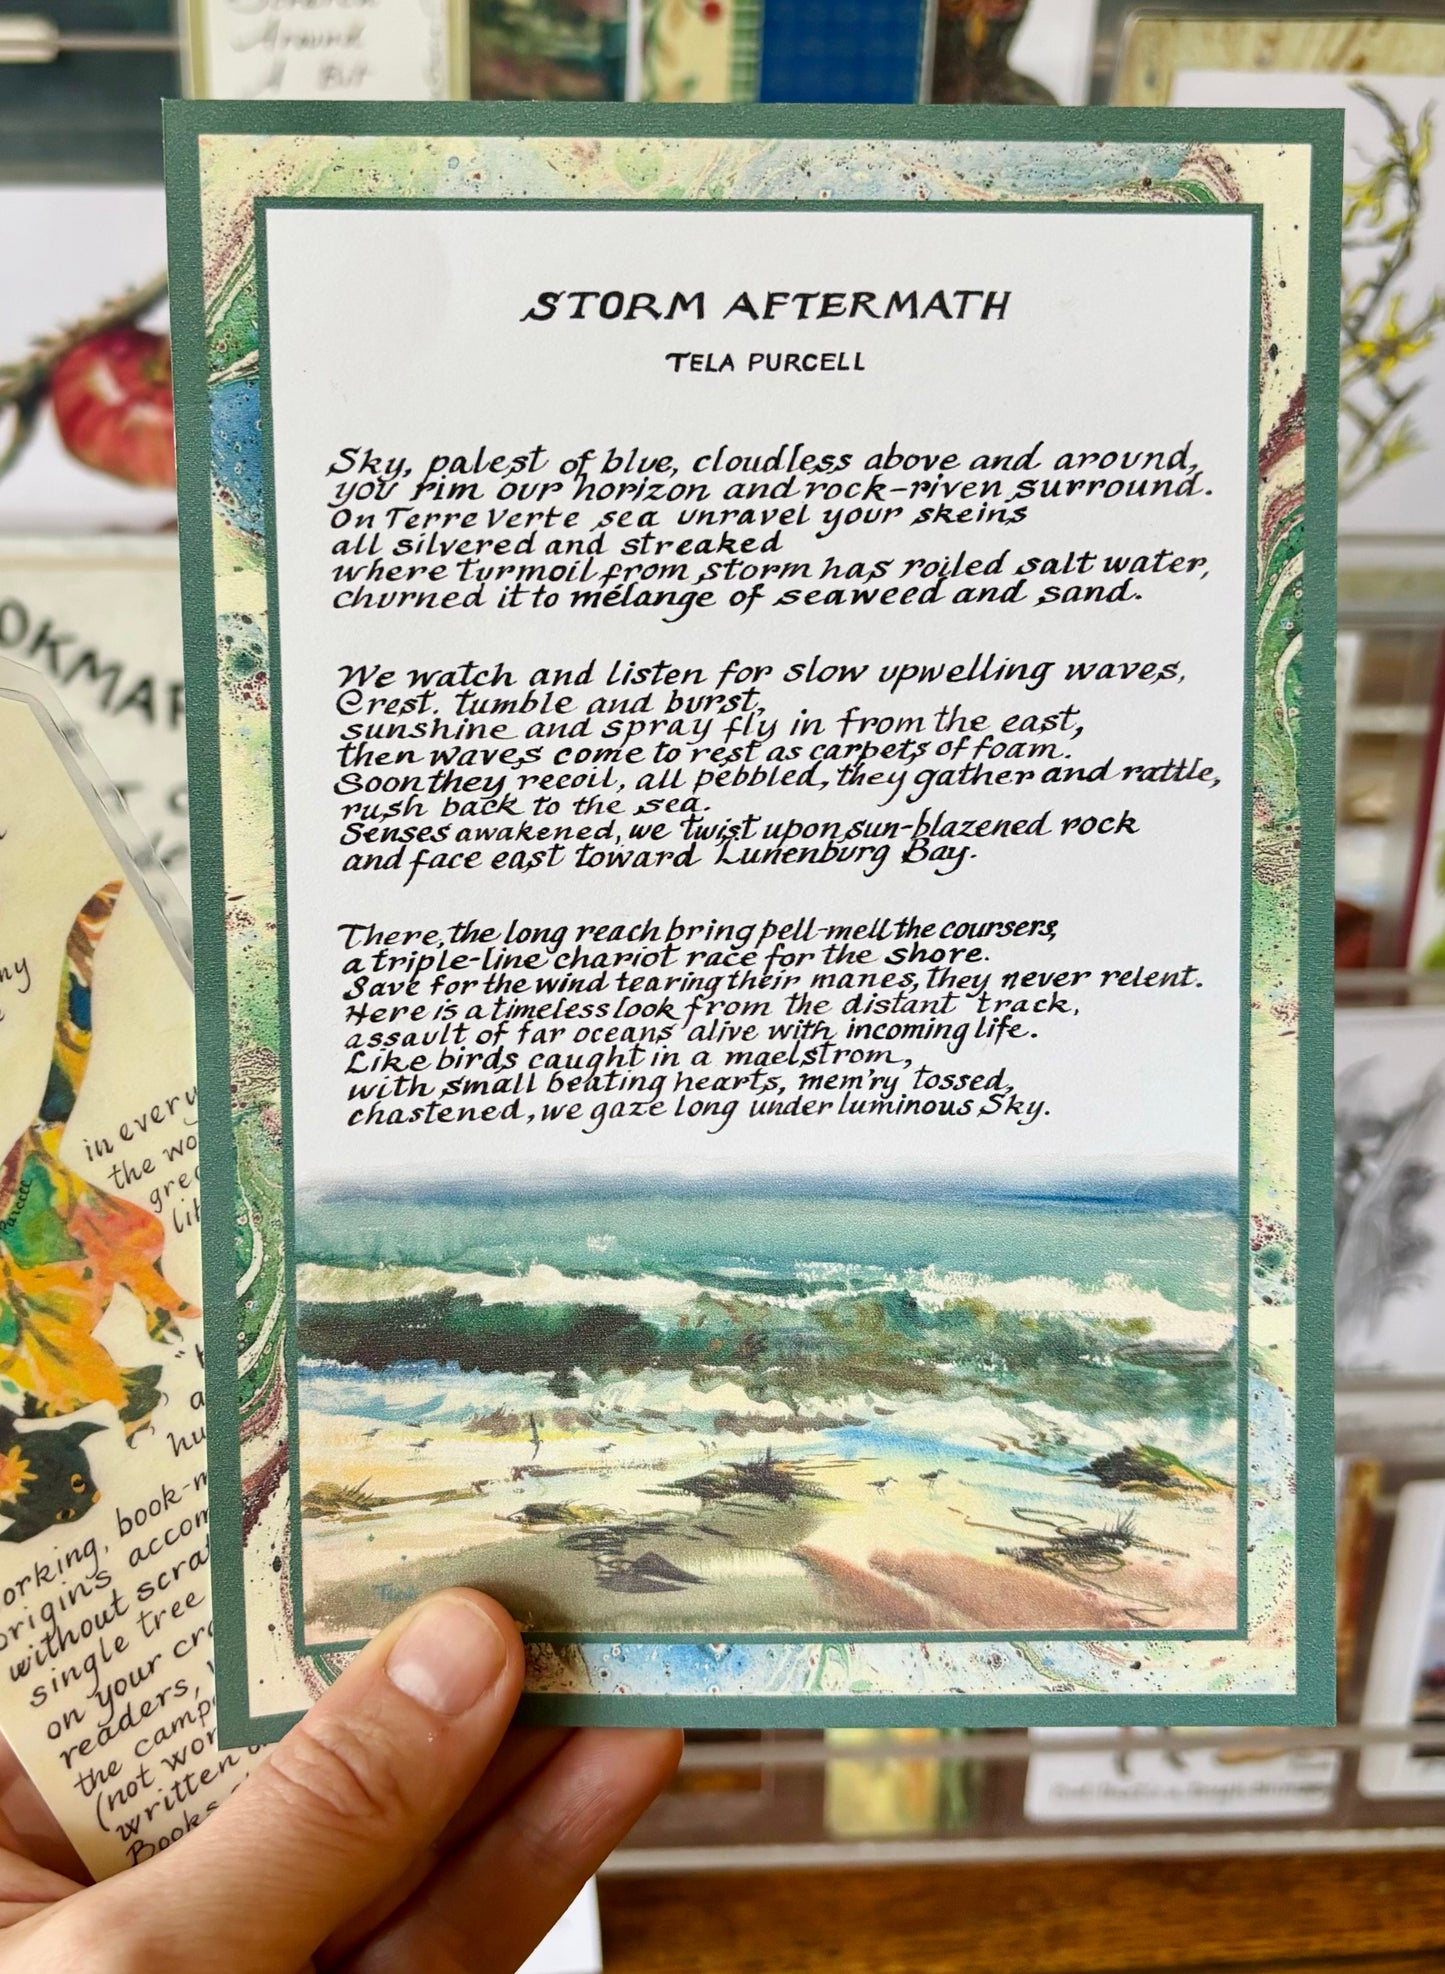 Around
A Bit
STORM AFTERMATH
TELA PURCELL
Sky, palest of blue, cloudless above and around,
you rim our horizon and rock-riven surround.
On Terre Verte sea unravel your skeins
all silvered and streaked
where turmoil from storm has roiled salt water,
churned it to mélange of seaweed and sand.
We watch and listen for slow upwelling waves,
Crest. tumble and burst,
sunshine and spray fly in from the east,
then waves come to rest as carpets of foam.
Soon they recoil, all pebbled, they gather and rattle,
rush back to the sea.
Senses awakened, we twist upon sun-blazened rock
and face east toward Lunenburg Bay.
There, the long reach bring pell-mell the coursers,
a triple-line chariot race for the shore.
Save for the wind tearing their manes, they never relent.
Here is a timeless look from the distant track,
assault of far oceans alive with incoming life.
Like birds caught in a maelstrom,
with small beating hearts, mem'ry tossed,
chastened, we gaze long under luminous Sky.
my
in every
the
Purcell
orking, book-
origins
without
single tree
on your
readers,
the
(not
written
Books